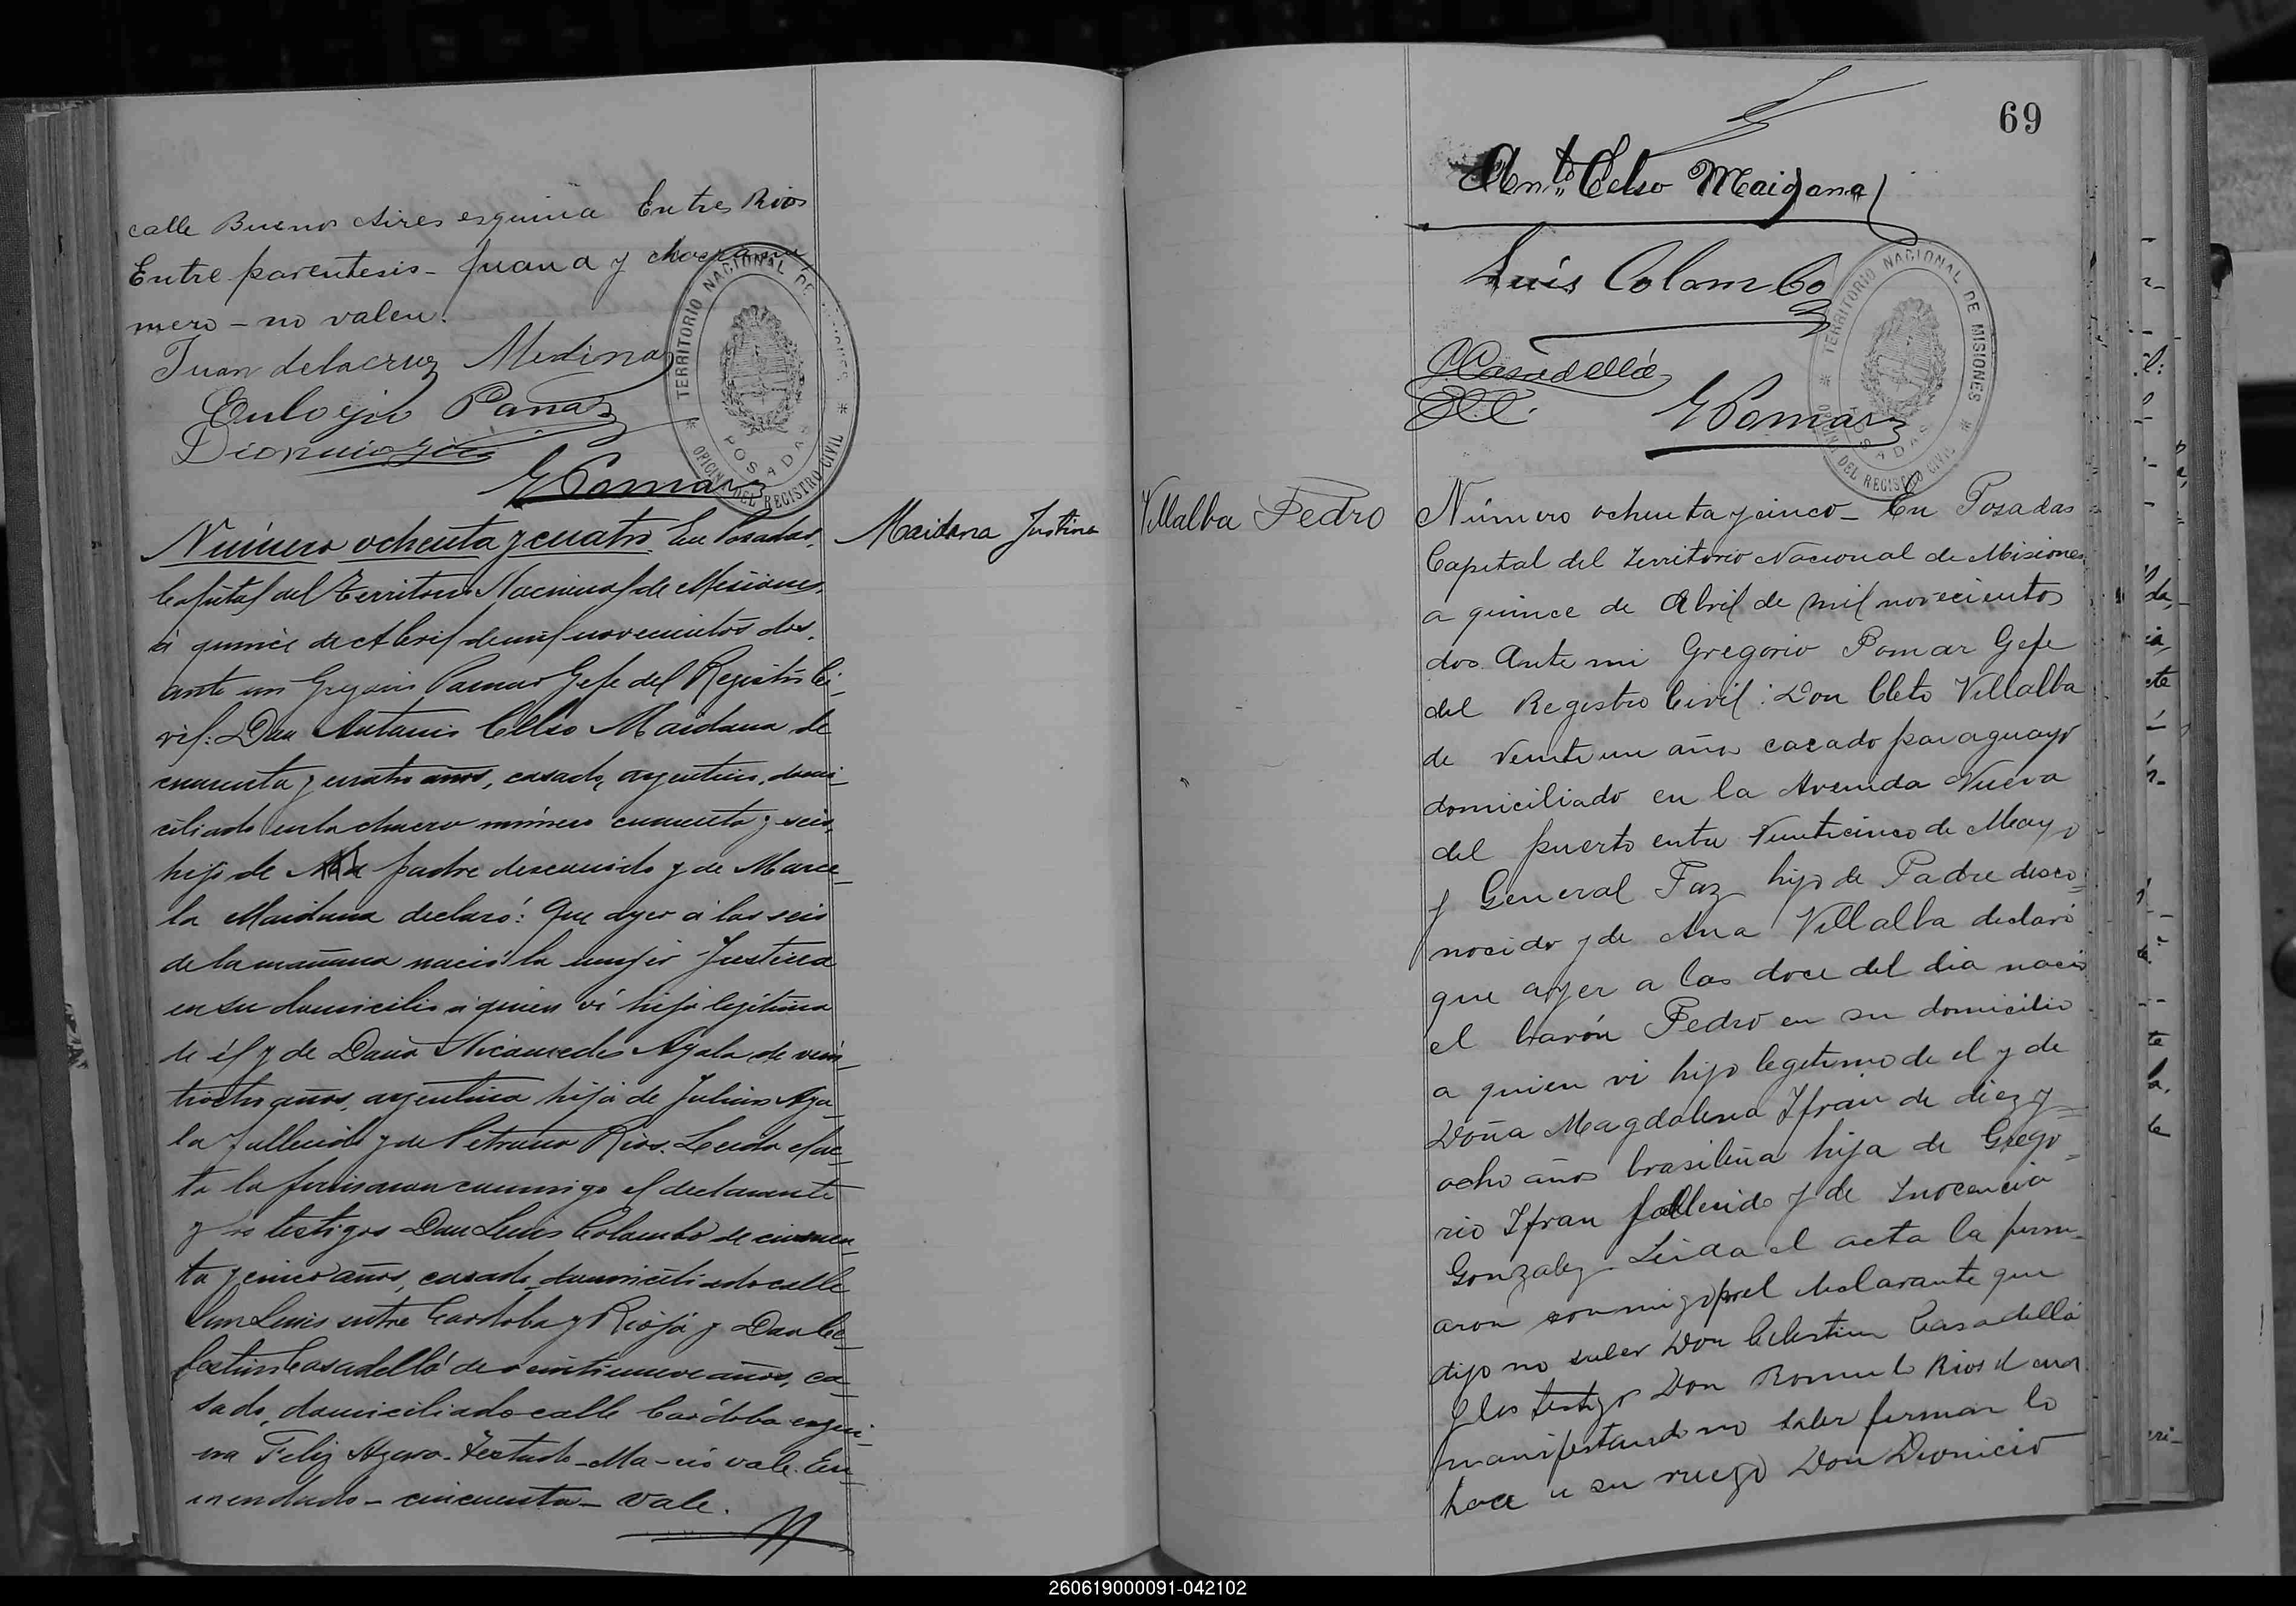 calle Buenos Aires esquina Entre Rios
Entre parentesis - Juana y chacra nu
mero - no valen.
Juan delacruz Medina
Eulogio Panaz
Dionicio
GPomar
TERRITORIO NACIONAL DE MISIONES
POSADAS
OFICINA DEL REGISTRO CIVIL
Número ochenta y cuatro. En Posadas,
Capital del Territorio Nacional de Misiones,
á quince de Abril de mil novecientos dos,
ante mi Gregorio Pomar Gefe del Registro Ci-
vil: Don Antonio Celso Maidana de
cuarenta y cuatro años, casado, argentino, domi-
ciliado en la chacra número cuarenta y seis,
hijo de padre desconocido y de Marce-
la Maidana declaró: Que ayer á las seis
de la mañana nació la mujer Justina
en su domicilio a quien ví hija legítima
de él y de Doña Nicamedes Ayala de vein-
tiocho años, argentina hija de Julian Aya-
la fallecido y de Petrona Rios. Leida el ac-
ta la firmaron conmigo el declarante
y los testigos Don Luis Colombo de cincuen-
ta y cinco años, casado, domiciliado calle
San Luis entre Cordoba y Rioja y Don Ce-
lestino Casadellá de veintinueve años, ca-
sado, domiciliado calle Cordoba esqui-
na Feliz Azara. Testado - Ma - no vale. En-
mendado - cincuenta - vale.
Maidana Justina
69
Ant.º Celso Maidana
Luis Colombo
CCasadellá
GPomar
TERRITORIO NACIONAL DE MISIONES
POSADAS
OFICINA DEL REGISTRO CIVIL
Villalba Pedro
Número ochenta y cinco - En Posadas
Capital del Territorio Nacional de Misiones
a quince de Abril de mil novecientos
dos Ante mi Gregorio Pomar Gefe
del Registro Civil: Don Cleto Villalba
de veinte un años casado paraguayo
domiciliado en la Avenida Nueva
del puerto entre Veinticinco de Mayo
y General Paz hijo de Padre desco-
nocido y de Ana Villalba declaró
que ayer a las doce del dia nació
el barón Pedro en su domicilio
a quien vi hijo legitimo de el y de
Doña Magdalena Ifran de diez y
ocho años brasileña hija de Grego-
rio Ifran fallecido y de Inocencia
Gonzalez. Leida el acta la firm-
aron conmigo por el declarante que
dijo no saber Don Celestino Casadellá
y los testigos Don Romulo Rios
manifestando no saber firmar lo
hace a su ruego Don Dionicio
260619000091-042102